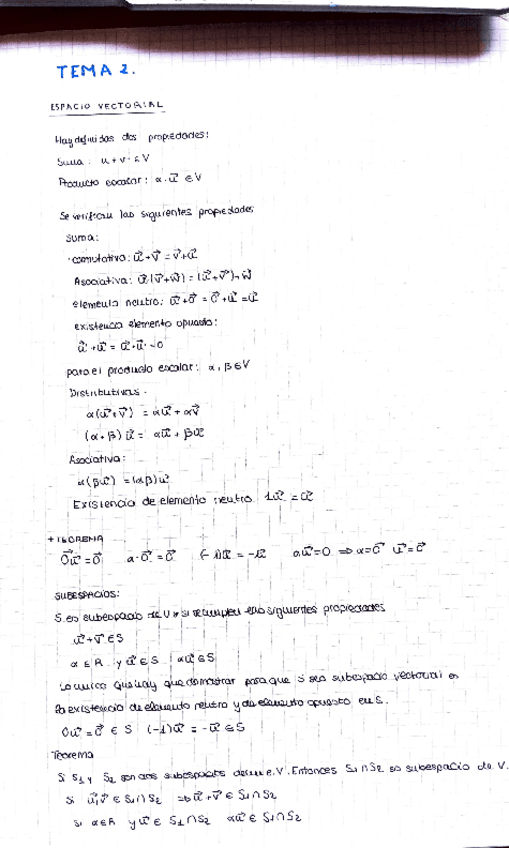 TEMA 2.
ESPACIO VECTORIAL
Hay definidas dos propiedades:
Suma: u + v ∈ V
Producto escolar: α·u⃗ ∈ V
Se verifican las siguientes propiedades
suma:
·conmutativa: u⃗+v⃗ = v⃗+u⃗
Asociativa: u⃗(v⃗+w⃗) = (u⃗+v⃗)+w⃗
elemento neutro: u⃗+0⃗ = 0⃗+u⃗ = u⃗
existencia elemento opuesto:
para el producto escolar: α, β ∈ V
Distributivas.
α(u⃗+v⃗) = αu⃗ + αv⃗
(α+β)u⃗ = αu⃗ + βu⃗
Asociativa:
α(βu⃗) = (αβ)u⃗
Existencia de elemento neutro 1u⃗ = u⃗
+ TEOREMA
0u⃗ = 0⃗ a·0⃗ = 0⃗ (-1)u⃗ = -u⃗ au⃗=0 ⇒ α=0 u⃗=0⃗
SUBESPACIOS:
S es subespacio de V si se cumplen las siguientes propiedades
u⃗+v⃗ ∈ S
α ∈ R y u⃗ ∈ S αu⃗ ∈ S
Lo unico que hay que demostrar para que S sea subespacio vectorial es
la existencia de elemento neutro y de elemento opuesto en S.
0u⃗ = 0⃗ ∈ S (-1)u⃗ = -u⃗ ∈ S
Teorema
Si S1 y S2 son dos subespacios de V. Entonces S1 ∩ S2 es subespacio de V.
si u⃗, v⃗ ∈ S1 ∩ S2 ⇒ u⃗ + v⃗ ∈ S1 ∩ S2
si α ∈ R y u⃗ ∈ S1 ∩ S2 αu⃗ ∈ S1 ∩ S2